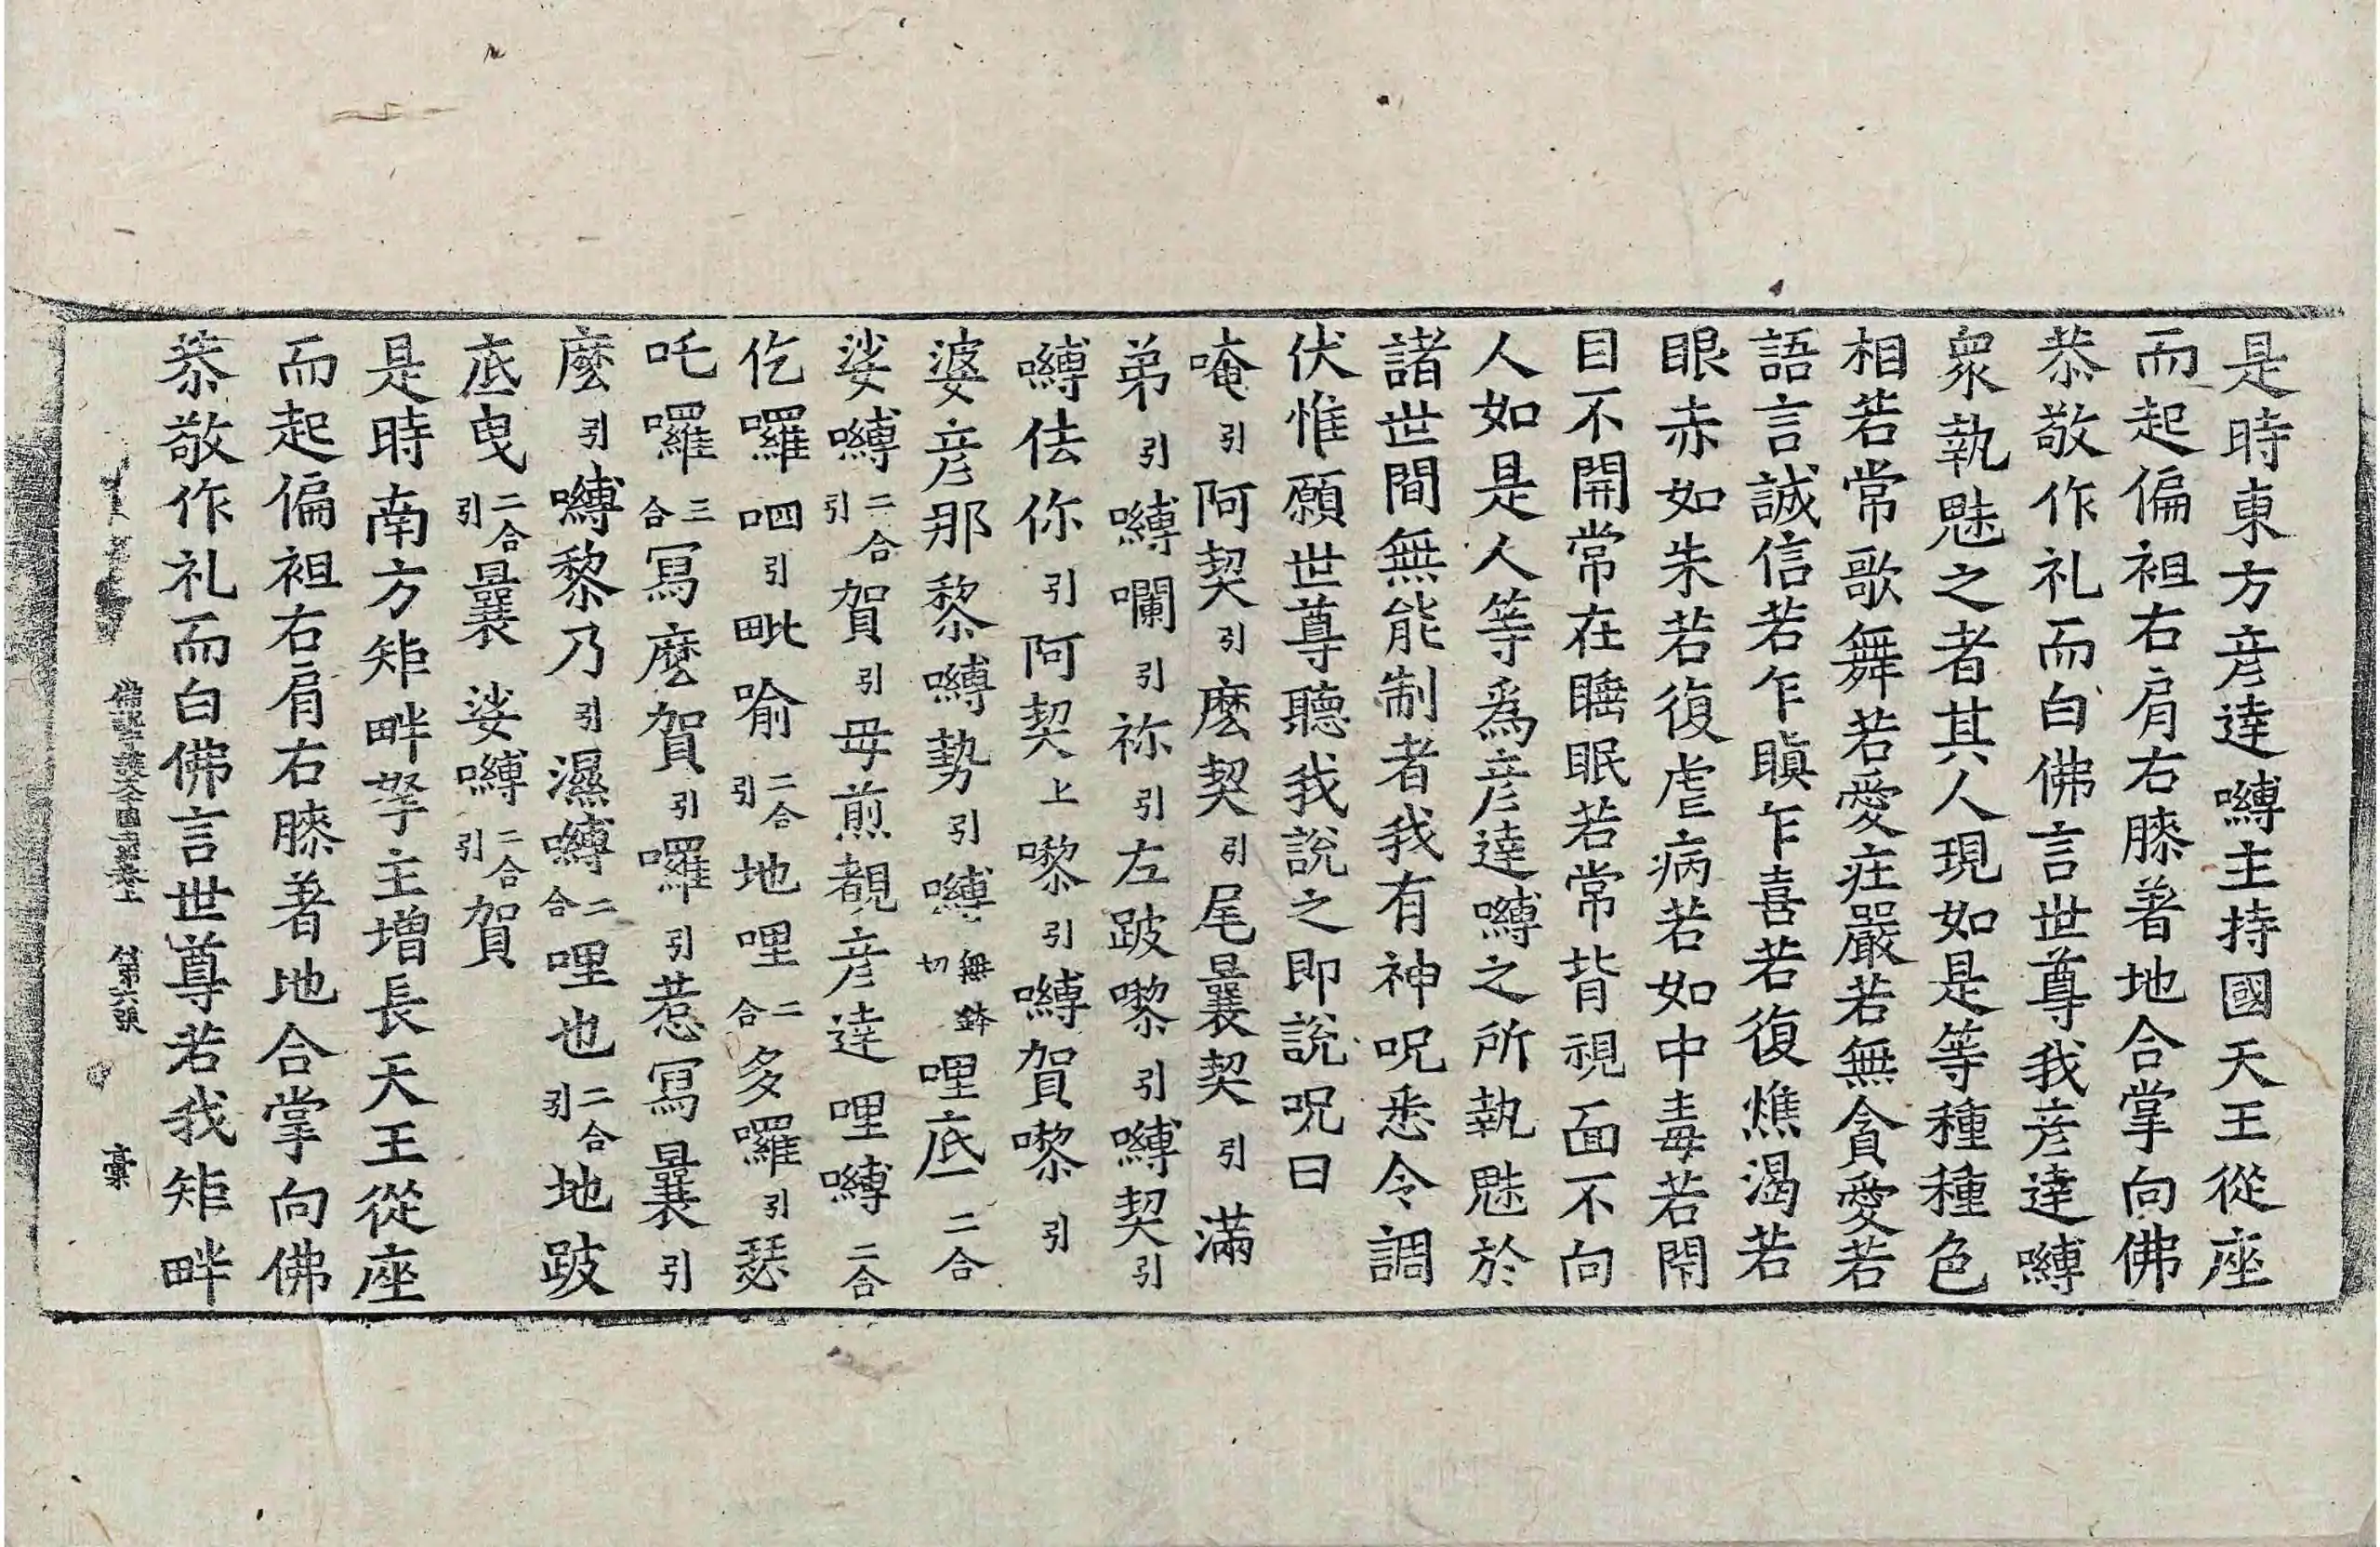 是時東方彦達嚩主持國天王從座
而起偏袒右肩右膝著地合掌向佛
恭敬作礼而白佛言世尊我彦達嚩
衆執魅之者其人現如是等種種色
相若常歌舞若愛庄嚴若無貪愛若
語言誠信若乍瞋乍喜若復燋渴若
眼赤如朱若復虐病若如中毒若閇
目不開常在睡眠若常背視面不向
人如是人等爲彦達嚩之所執魅於
諸世間無能制者我有神呪悉令調
伏惟願世尊聽我說之即說呪曰
唵引阿契引麽契引尾曩契引滿
弟引嚩囒引祢引左跛嚟引嚩契引
嚩佉你引阿契上嚟引嚩賀嚟引
婆彦那黎嚩勢引嚩無鉢切哩底二合
娑嚩二合引賀引毋煎覩彦達哩嚩二合
仡囉呬引毗喻二合引地哩二合多囉引瑟
吒囉三合冩麽賀引囉引惹冩曩引
麽引嚩黎乃引濕嚩二合哩也二合引地跛
底曳二合引曩娑嚩二合引賀
是時南方矩畔拏主增長天王從座
而起偏袒右肩右膝著地合掌向佛
恭敬作礼而白佛言世尊若我矩畔
佛說護大千國土經卷上 第六張 稾